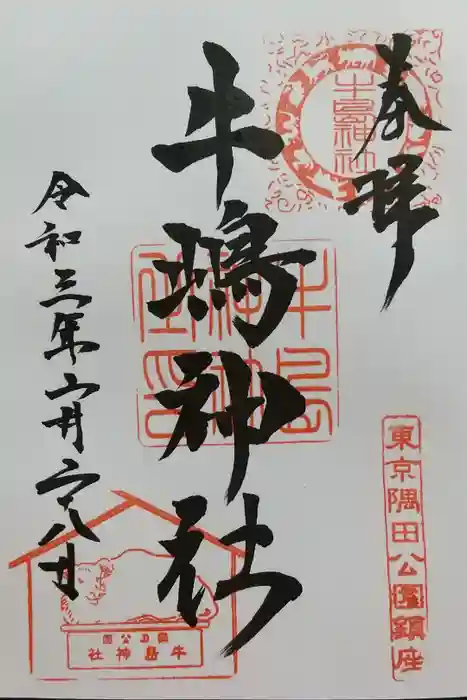 奉拝
牛嶋神社
令和三年六月二十八日
牛島神社
東京隅田公園鎮座
隅田公園
牛島神社